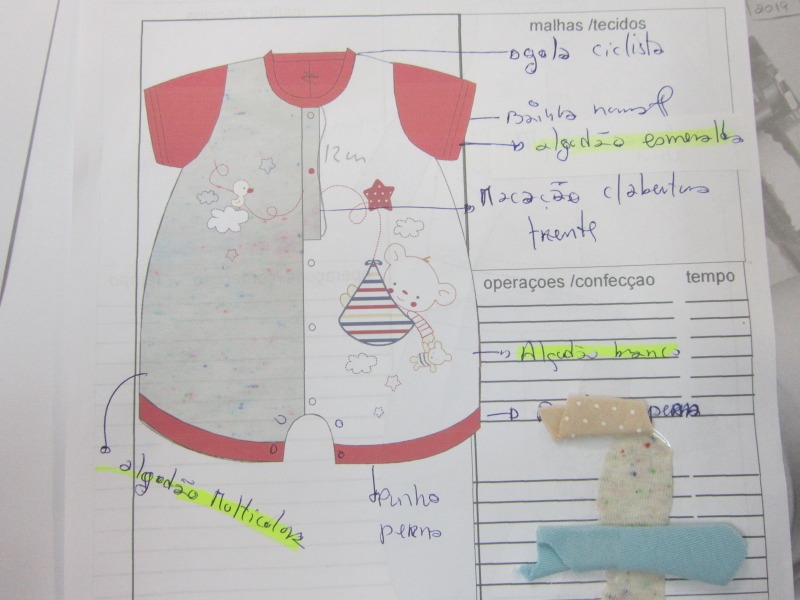 2019
malhas /tecidos
gola ciclista
Bainha normal
algodão esmeralda
12cm
Macacão c/abertura
frente
operaçoes /confecçao tempo
Algodão branco
perna
algodão Multicolor
punho
perna